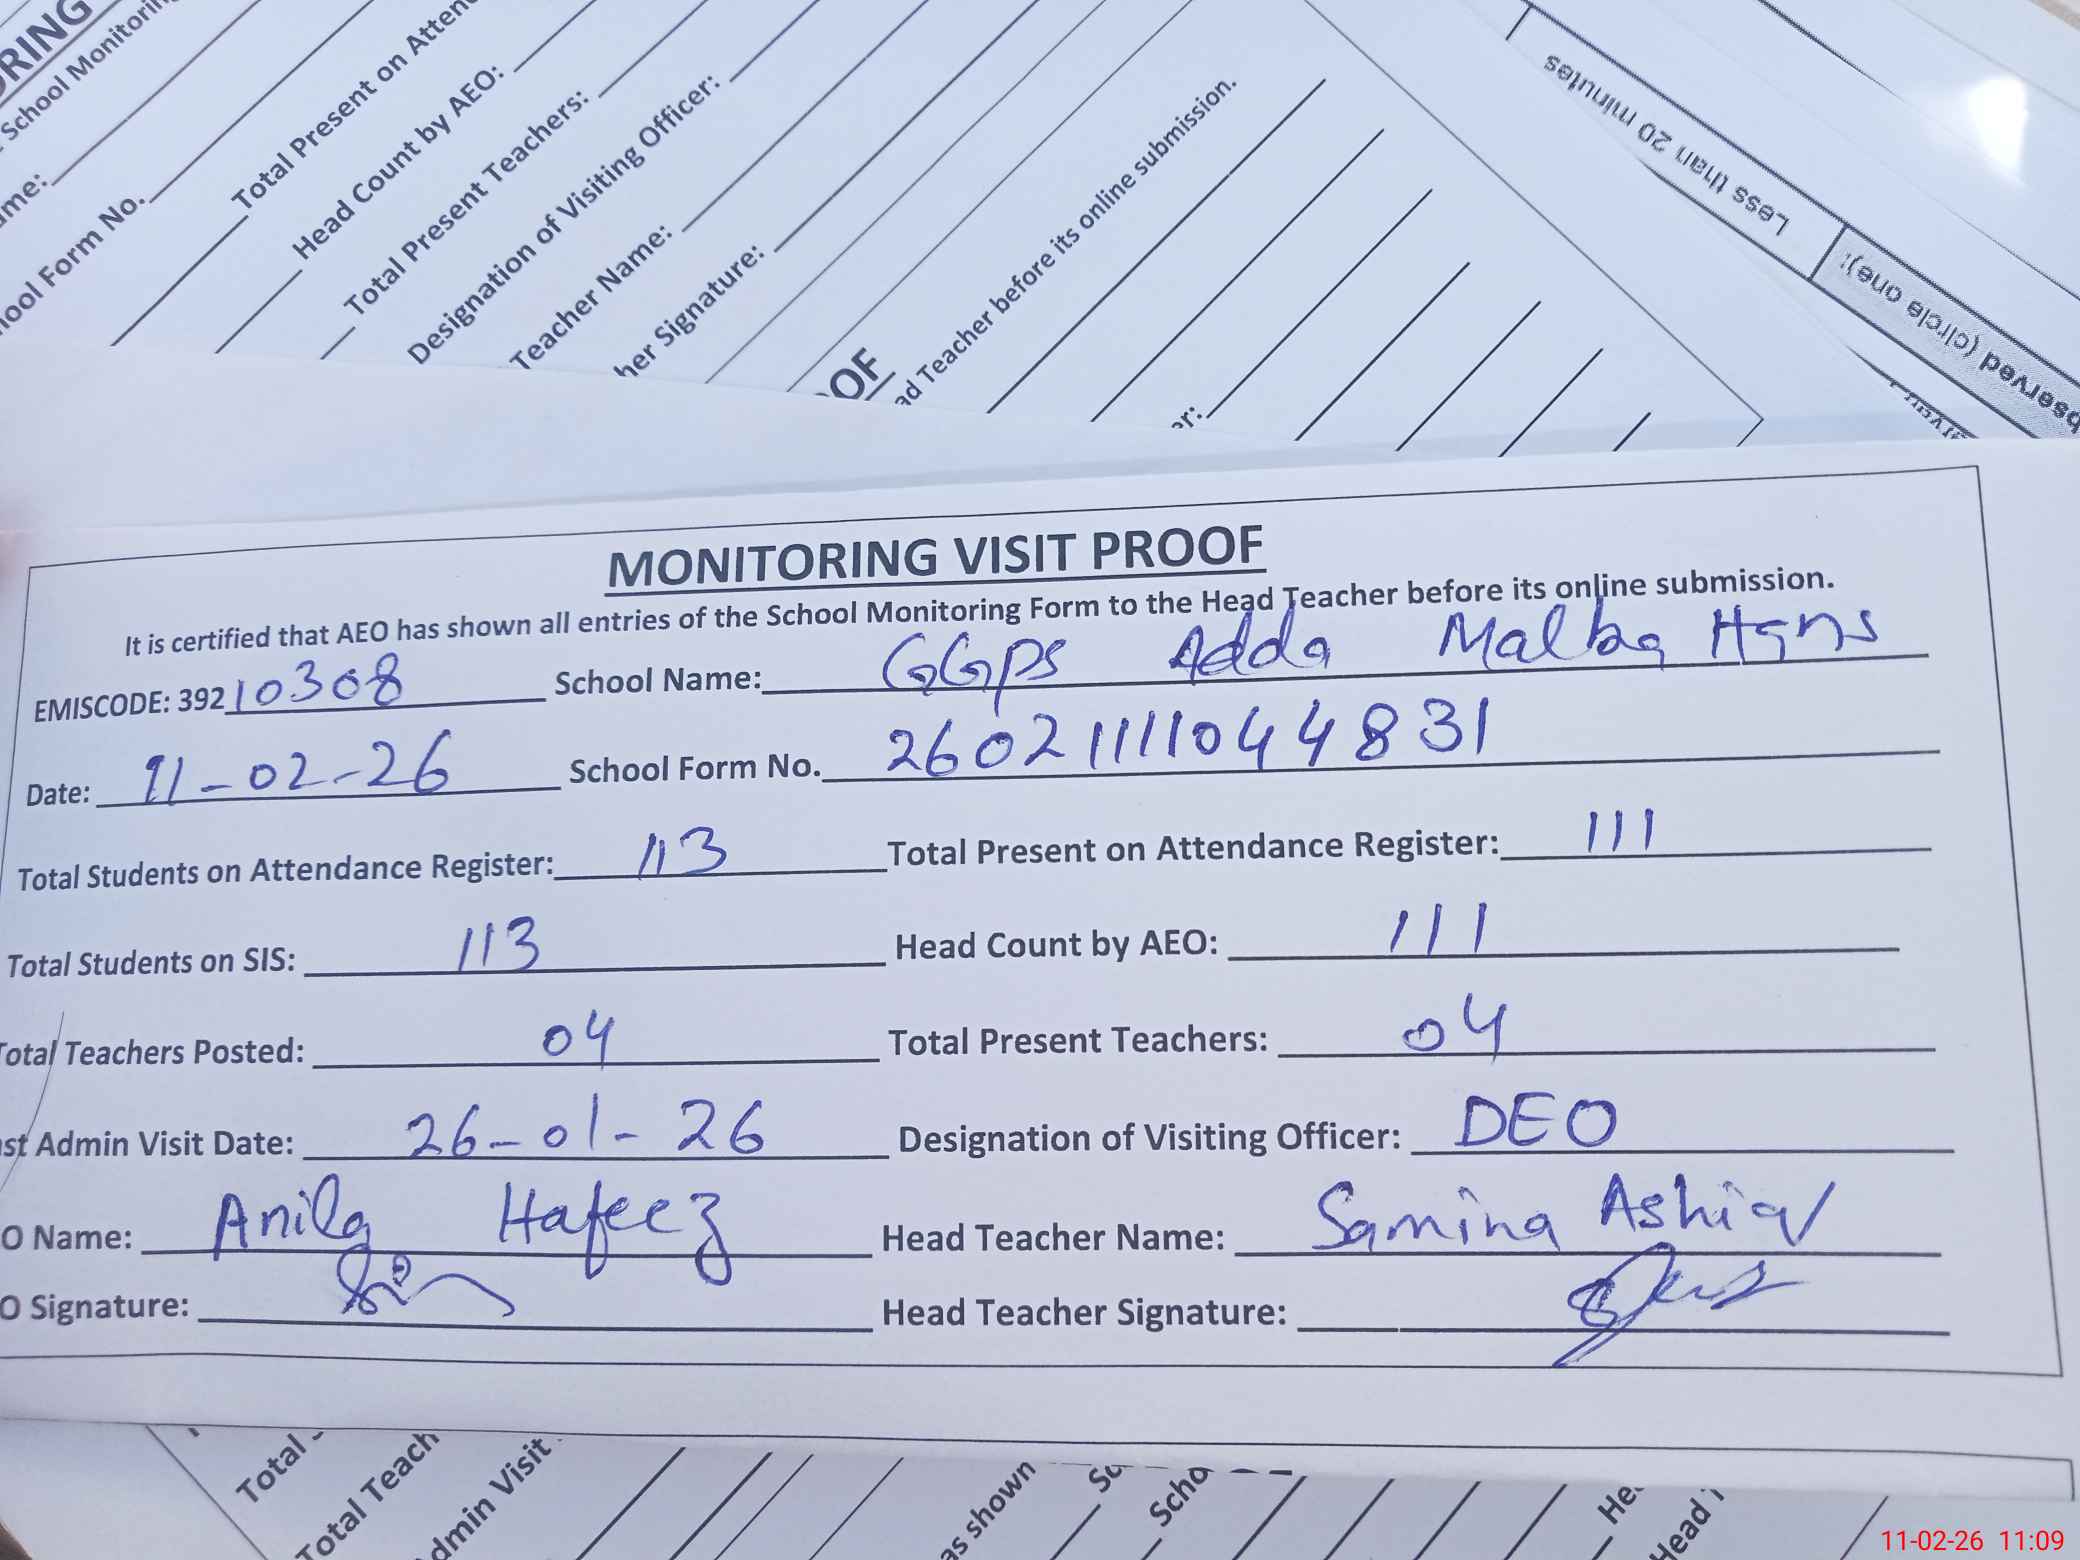 RING
School Monitorin
Total Present on Atten
Head Count by AEO:
Form No.
Total Present Teachers:
Designation of Visiting Officer:
Teacher Name:
her Signature:
OF
ad Teacher before its online submission.
er:
Less than 20 minutes
served (circle one):
MONITORING VISIT PROOF
It is certified that AEO has shown all entries of the School Monitoring Form to the Head Teacher before its online submission.
EMISCODE: 39210308 School Name: GGPS Adda Malka Hans
Date: 11-02-26 School Form No. 260211111044831
Total Students on Attendance Register: 113 Total Present on Attendance Register: 111
Total Students on SIS: 113 Head Count by AEO: 111
Total Teachers Posted: 04 Total Present Teachers: 04
st Admin Visit Date: 26-01-26 Designation of Visiting Officer: DEO
O Name: Anila Hafeez Head Teacher Name: Samina Ashiq
O Signature: Head Teacher Signature:
Total
Total Teach
dmin Visit
as shown
Scho
Head
11-02-26 11:09